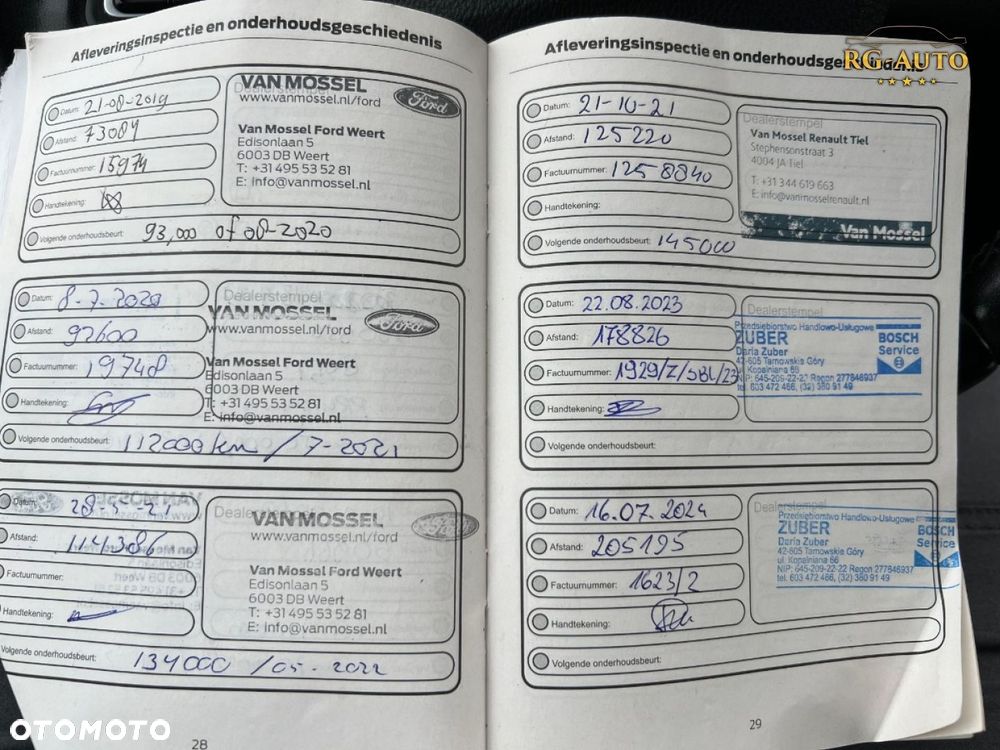 Afleveringsinspectie en onderhoudsgeschiedenis
Datum: 21-08-2019
Afstand: 73084
Factuurnummer: 15974
Handtekening:
Volgende onderhoudsbeurt: 93,000 of 08-2020
VAN MOSSEL
www.vanmossel.nl/ford
Ford
Van Mossel Ford Weert
Edisonlaan 5
6003 DB Weert
T: +31 495 53 52 81
E: info@vanmossel.nl
Datum: 8-7-2020
Afstand: 92600
Factuurnummer: 19748
Handtekening:
Volgende onderhoudsbeurt: 112000 km / 7-2021
Dealerstempel
VAN MOSSEL
www.vanmossel.nl/ford
Ford
Van Mossel Ford Weert
Edisonlaan 5
6003 DB Weert
T: +31 495 53 52 81
E: info@vanmossel.nl
Datum: 28-5-21
Afstand: 114386
Factuurnummer:
Handtekening:
Volgende onderhoudsbeurt: 134000 / 05-2022
Dealerstempel
VAN MOSSEL
www.vanmossel.nl/ford
Ford
Van Mossel Ford Weert
Edisonlaan 5
6003 DB Weert
T: +31 495 53 52 81
E: info@vanmossel.nl
28
Afleveringsinspectie en onderhoudsgeschiedenis
Datum: 21-10-21
Afstand: 125220
Factuurnummer: 1258840
Handtekening:
Volgende onderhoudsbeurt: 145000
Dealerstempel
Van Mossel Renault Tiel
Stephensonstraat 3
4004 JA Tiel
T: +31 344 619 663
E: info@vanmosselrenault.nl
Van Mossel
Datum: 22.08.2023
Afstand: 178826
Factuurnummer: 1929/Z/SBL/23
Handtekening:
Volgende onderhoudsbeurt:
Dealerstempel
Przedsiębiorstwo Handlowo-Usługowe
ZUBER
Daria Zuber
42-605 Tarnowskie Góry
ul. Kopalniana 66
NIP: 645-209-22-22 Regon 277846937
tel. 603 472 466, (32) 380 91 49
BOSCH
Service
Datum: 16.07.2024
Afstand: 205195
Factuurnummer: 1623/2
Handtekening:
Volgende onderhoudsbeurt:
Dealerstempel
Przedsiębiorstwo Handlowo-Usługowe
ZUBER
Daria Zuber
42-605 Tarnowskie Góry
ul. Kopalniana 66
NIP: 645-209-22-22 Regon 277846937
tel. 603 472 466, (32) 380 91 49
BOSCH
Service
29
RG-AUTO
OTOMOTO